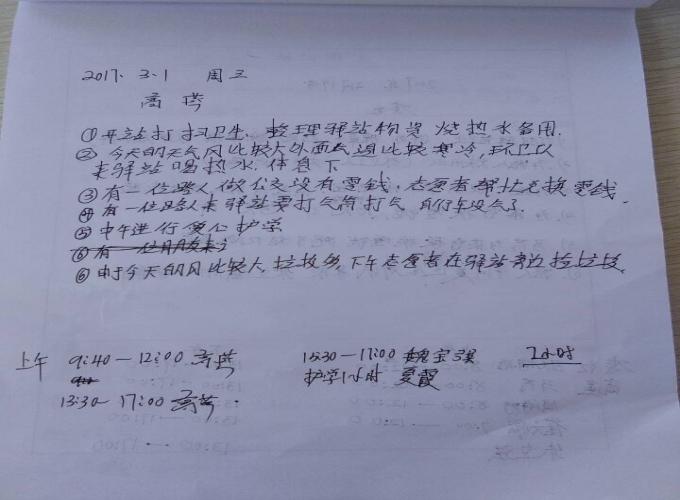 2017. 3.1 周三
高 塔
①开站打扫卫生、整理驿站物资 烧热水备用.
② 今天的天气风比较大外面气温比较寒冷,环卫工人
来驿站喝热水,休息下
③有一位路人做公交没有零钱,志愿者帮忙兑换零钱
④有一位路人来驿站要打气筒打气 自行车没气了
⑤中午进行爱心护学
⑥由于今天的风比较大,垃圾多,下午志愿者在驿站旁边捡垃圾.
上午 9:40—12:00 15:30—17:00 魏宝琪 2小时
护学1小时 夏霞
13:30—17:00